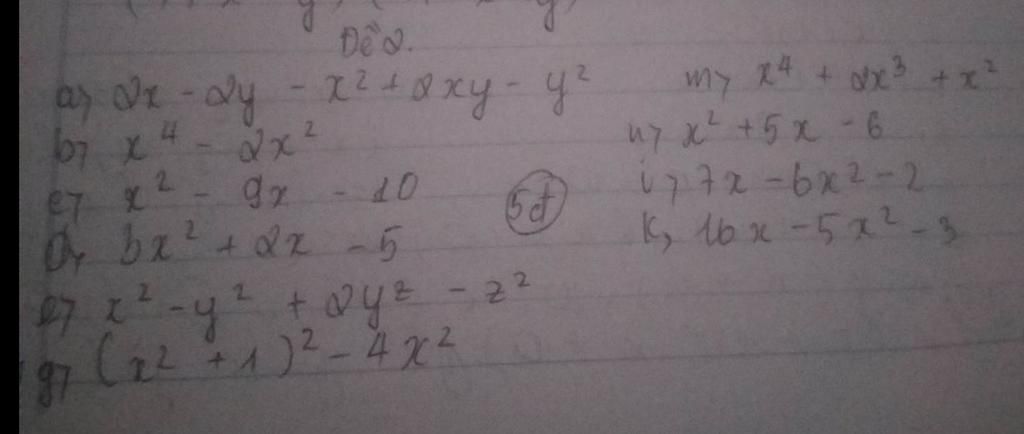 Đề 2.
a, 2x - 2y - x² + 2xy - y²
b, x⁴ - 2x²
c, x² - 9x - 10
d, 3x² + 2x - 5
e, x² - y² + 2yz - z²
g, (x² + 1)² - 4x²
5đ
m, x⁴ + 2x³ + x²
n, x² + 5x - 6
i, 7x - 6x² - 2
k, 16x - 5x² - 3